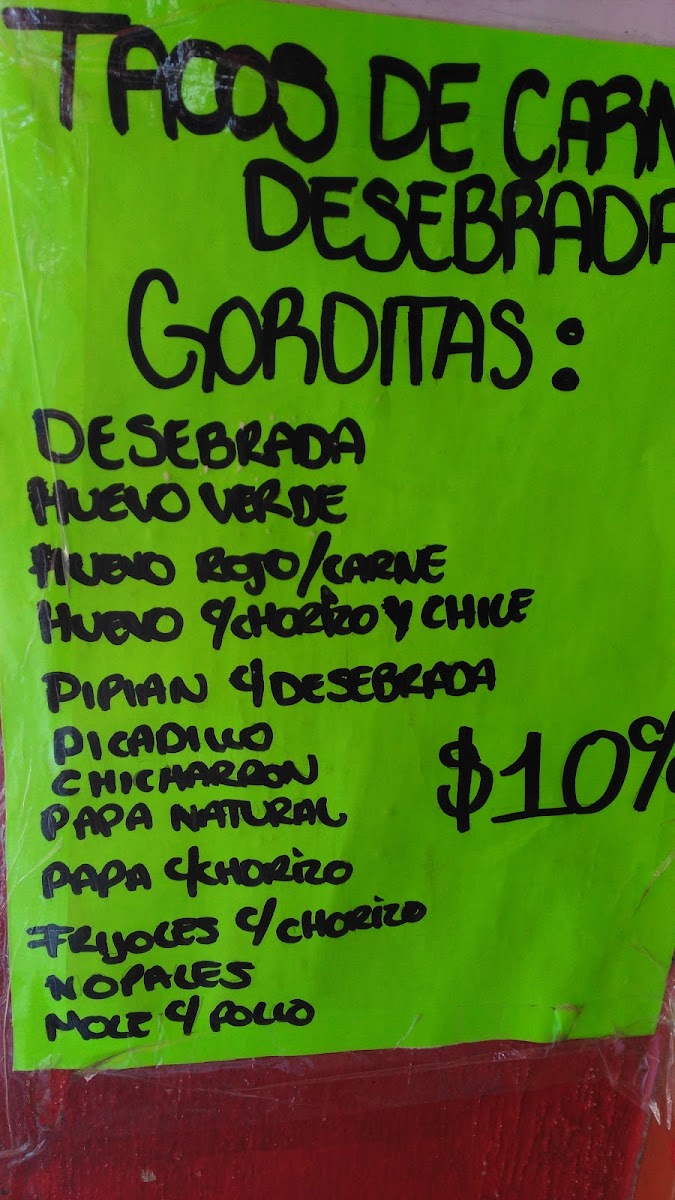 TACOS DE CARN
DESEBRADA
GORDITAS:
DESEBRADA
HUEVO VERDE
HUEVO ROJO/CARNE
HUEVO C/CHORIZO Y CHILE
PIPIAN C/DESEBRADA
PICADILLO
CHICHARRON
PAPA NATURAL
$10 c/
PAPA C/CHORIZO
FRIJOLES C/CHORIZO
NOPALES
MOLE C/POLLO